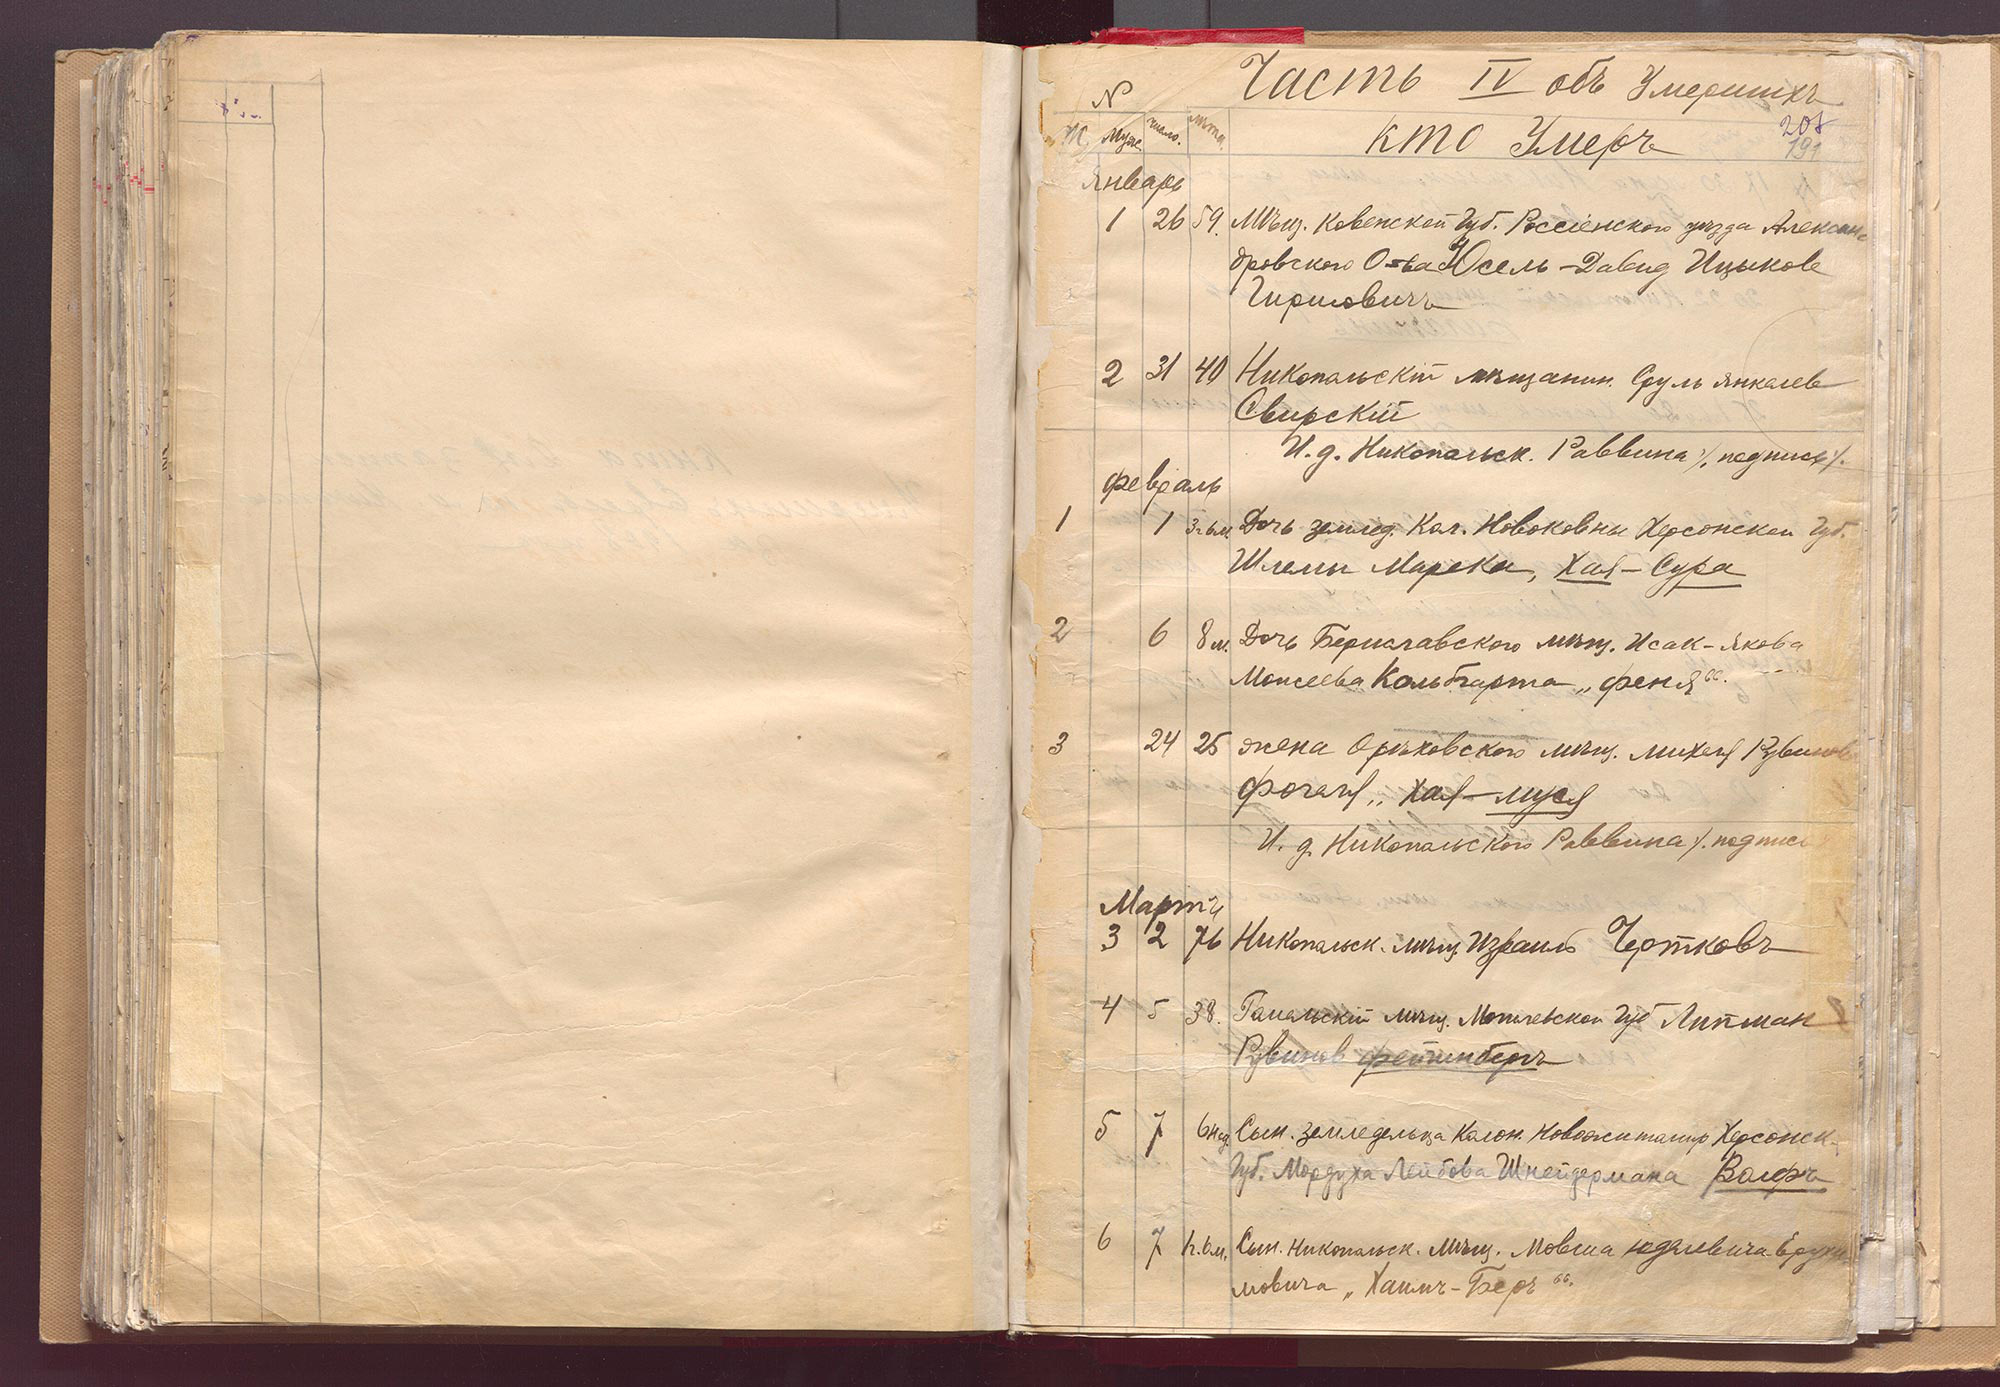 Часть IV объ Умершихъ
№
М. Муже. число. лѣта. КТО Умеръ 208
191
Январь
1 26 59. Мѣщ. Ковенской Губ. Россіенского уѣзда Алексан
дровского О-ва Юсель-Давид Ицыков
Гиршовичъ
2 31 40 Никопальскій мѣщанин. Сруль Янкелев
Свирскій
И. д. Никопальск. Раввина /. подпись /.
Февраль
1 1 Дочь землед. Кол. Новоковны Херсонской Губ.
Шлемы Марека, Хая-Сура
2 6 8 м. Дочь Бериславского мѣщ. Исак-Якова
Моисеева Кольбгарта „Феня“.
3 24 25 жена Орѣховского мѣщ. Михеля Рувинов
Фогеля „Хая-Муся
И. д. Никопальского Раввина /. подпись
Мартъ
3 2 76 Никопальск. мѣщ. Израиль Чертковъ
4 5 38. мѣщ. Могилевской Губ Липман
Рувинов
5 7 6 нед. Сын. земледельца Колон. Новожитомир Херсонск.
Губ. Мордуха Лейбова Шнейдермана Волфъ
6 7 Сын. Никопальск. мѣщ. Мовша Юделевича Ерухи
мовича „Хаимъ-Беръ“.